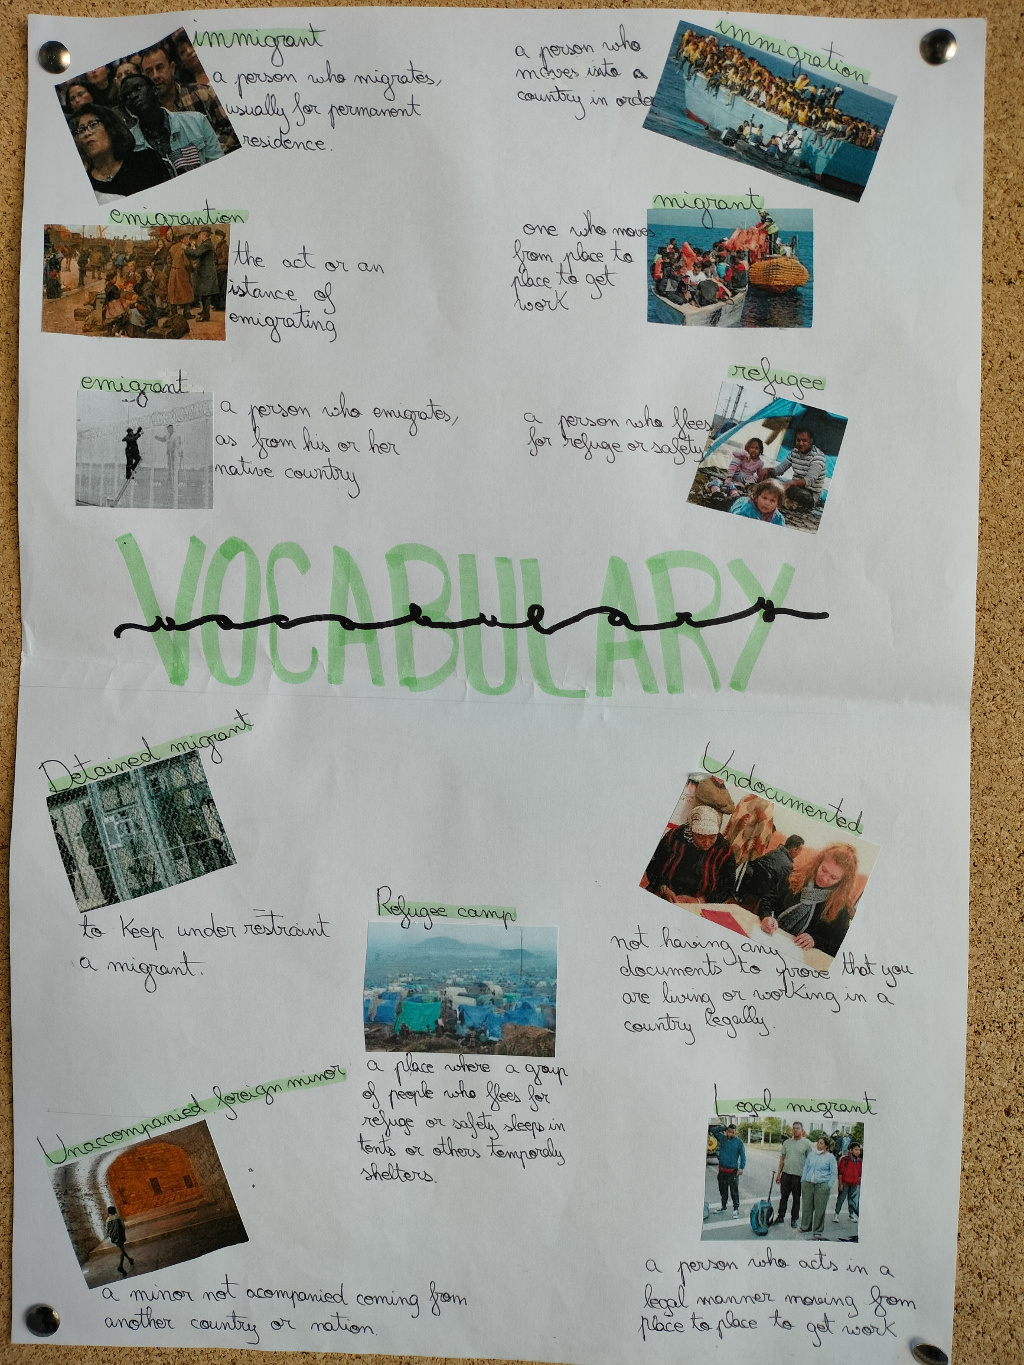 immigrant
a person who migrates,
usually for permanent
residence.
immigration
a person who
moves into a
country in order
emigrantion
the act or an
istance of
emigrating
migrant
one who moves
from place to
place to get
work
emigrant
a person who emigrates,
as from his or her
native country
refugee
a person who flees
for refuge or safety
VOCABULARY
vocabulary
Detained migrant
to keep under restraint
a migrant.
Undocumented
not having any
documents to prove that you
are living or working in a
country legally.
Refugee camp
a place where a group
of people who flees for
refuge or safety sleeps in
tents or others temporaly
shelters.
Unaccompanied foreign minor
a minor not acompanied coming from
another country or nation.
Legal migrant
a person who acts in a
legal manner moving from
place to place to get work